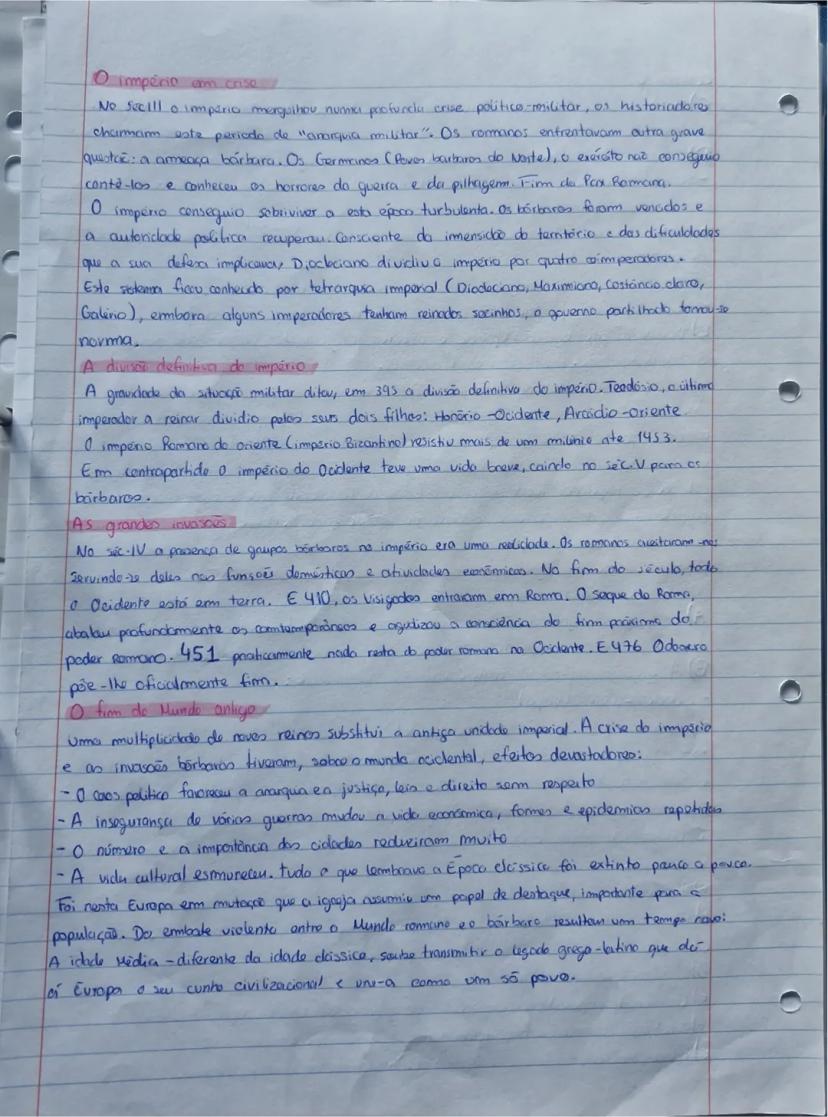 O império em crise
No Sec III o império mergulhou numa profunda crise político-militar, os historiadores
chamam este periodo de "anarquia militar". Os romanos enfrentavam outra grave
questão: a ameaça bárbara. Os Germanos (Povos barbaros do Norte), o exército não conseguio
contê-los e conheceu os horrores da guerra e da pilhagem. Fim da Pax Romana.
O império conseguio sobriviver a esta época turbulenta. Os bárbaros foram vencidos e
a autoridade política recuperou. Consciente da imensidão do território e das dificuldades
que a sua defesa implicava, Diocleciano dividiu o império por quatro imperadores.
Este sistema ficou conhecido por tetrarquia imperial (Diocleciano, Maximiano, Costâncio claro,
Galério), embora alguns imperadores tenham reinados sozinhos, o governo partilhado tornou-se
norma.
A divisão definitiva do império
A gravidade da situação militar ditou, em 395 a divisão definitiva do império. Teodósio, o último
imperador a reinar dividio pelos seus dois filhos: Honório-Ocidente, Arcádio-Oriente
O império Romano do oriente (império Bizantino) resistiu mais de um milénio ate 1453.
Em contrapartida o império do Ocidente teve uma vida breve, caindo no séc.V para os
bárbaros.
As grandes invasões
No séc.IV a presença de grupos bárbaros no império era uma realidade. Os romanos aceitaram-nos
servindo-se deles nas funsões domésticas e atividades económicas. No fim do século, todo
o Ocidente está em terra. E 410, os Visigodos entraram em Roma. O saque de Roma,
abalou profundamente os comtemporâneos e agudizou a consciência do fim próximo do
poder Romano. 451 praticamente nada resta do poder romano no Ocidente. E 476 Odoacro
põe-lhe oficialmente fim.
O fim do Mundo antigo
Uma multiplicidade de novos reinos substitui a antiga unidade imperial. A crise do império
e as invasões bárbaras tiveram, sobre o mundo ocidental, efeitos devastadores:
- O caos político favoreceu a anarquia en justiça, leis e direito sem respeito
- A insegurança de várias guerras mudou a vida económica, fomes e epidemias repetidas
- O número e a importância das cidades reduziram muito
- A vida cultural esmoreceu. tudo o que lembrava a Época clássica foi extinto pouco a pouco.
Foi nesta Europa em mutação que a igreja assumiu um papel de destaque, importante para a
população. Do embate violento entre o Mundo romano e o bárbaro resultou um tempo novo:
A idade Média - diferente da idade clássica, soube transmitir o legado grego-latino que dá
á Europa o seu cunho civilizacional e une-a como um só povo.